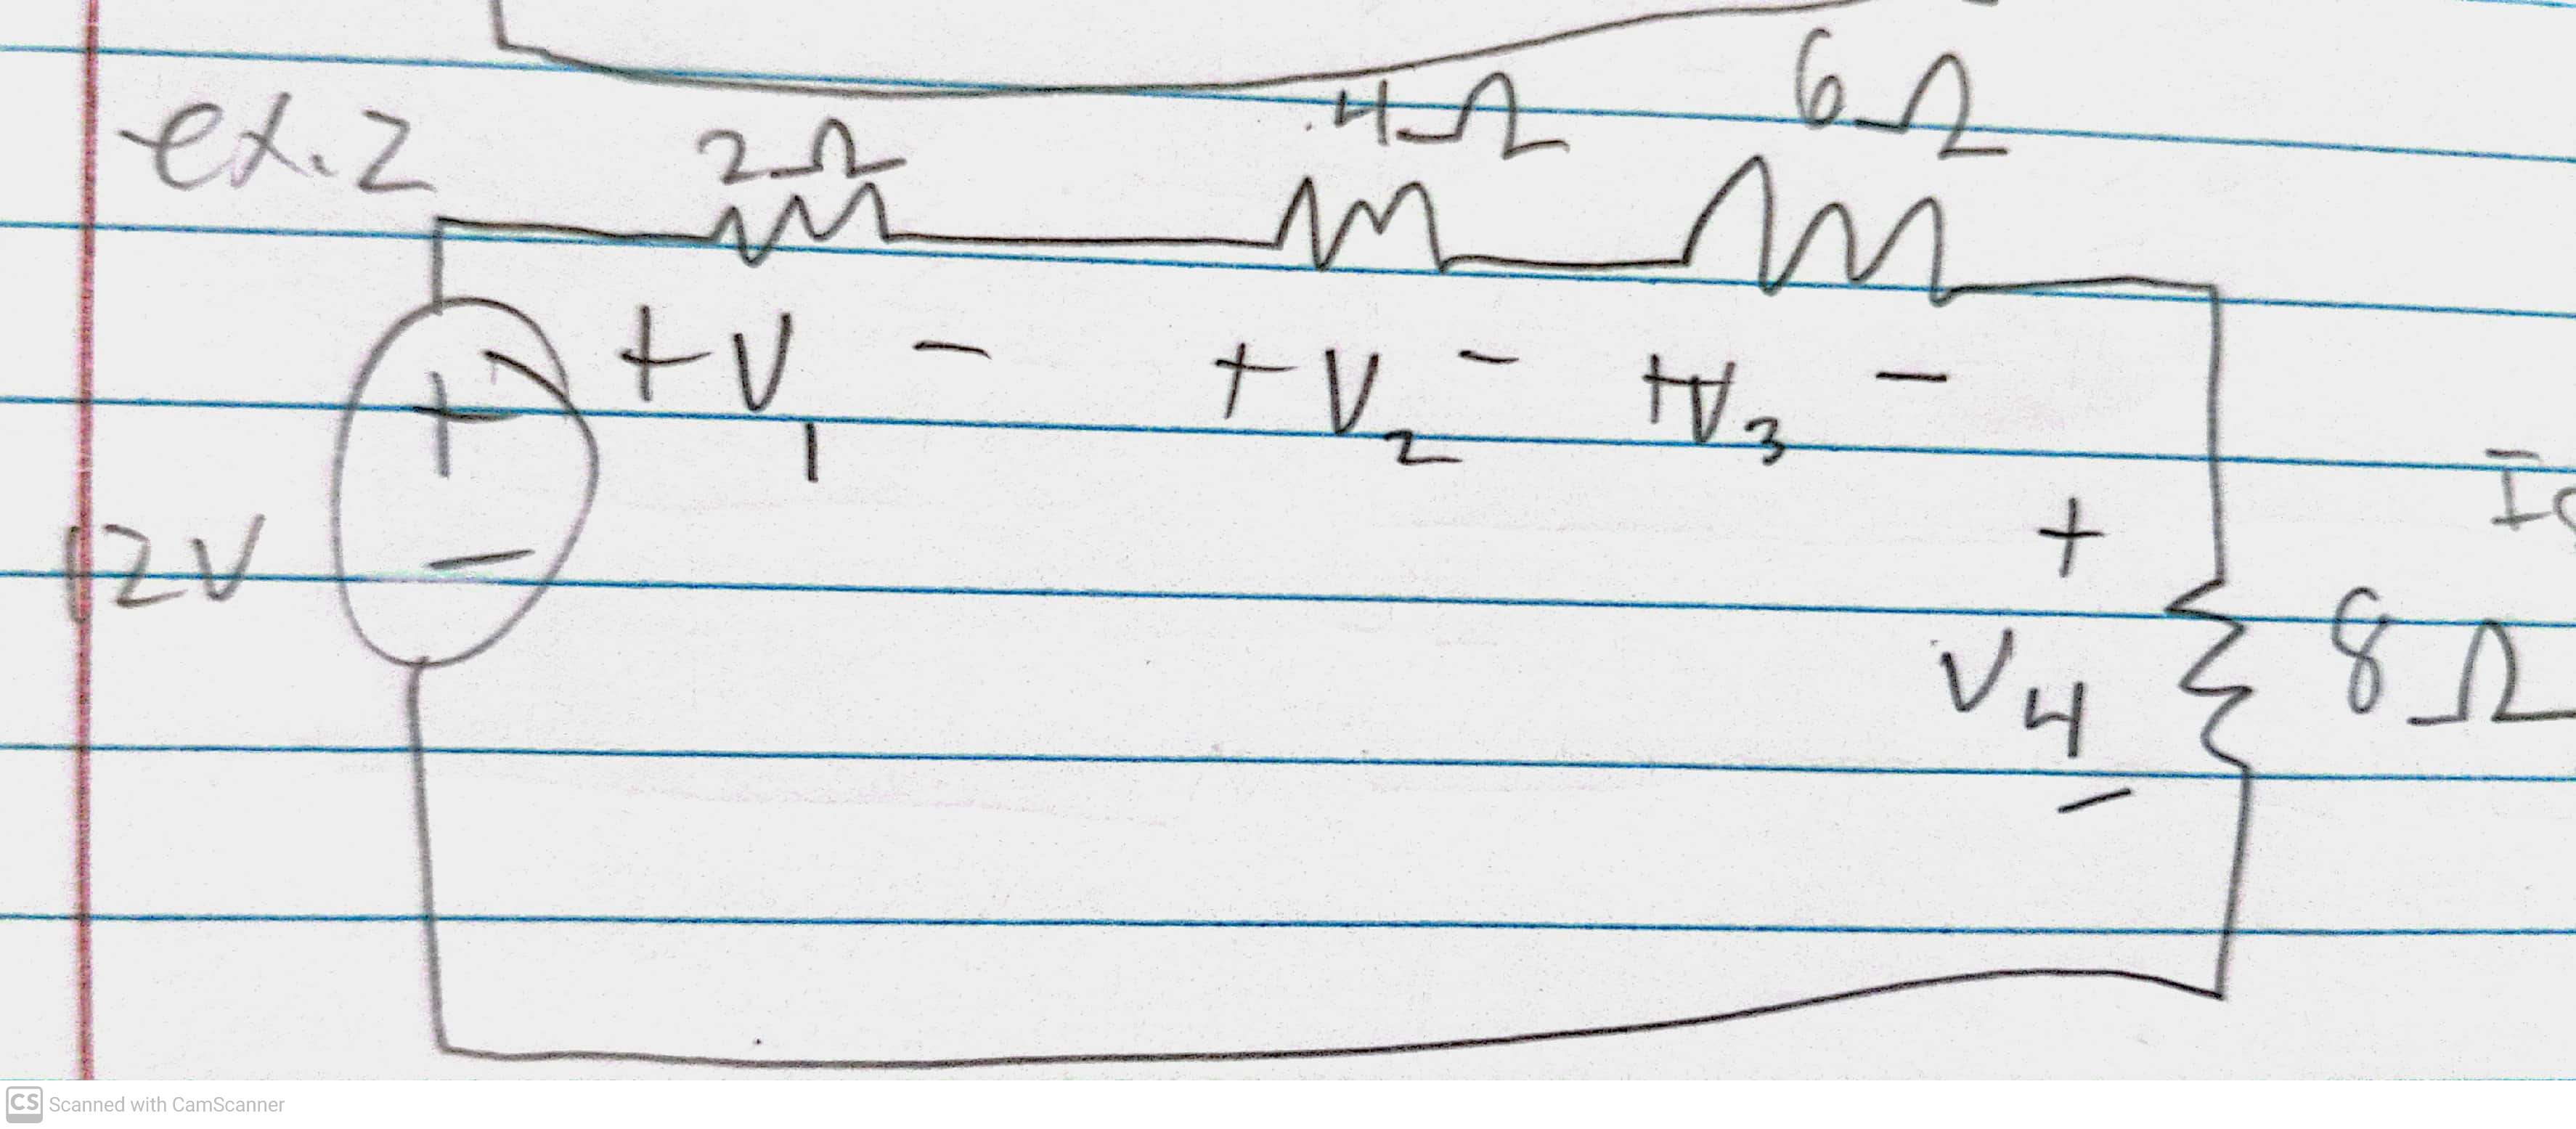 ex.2
2Ω 4Ω 6Ω
+ V1 - + V2 - + V3 -
+
12V
V4 8Ω
-
CS Scanned with CamScanner